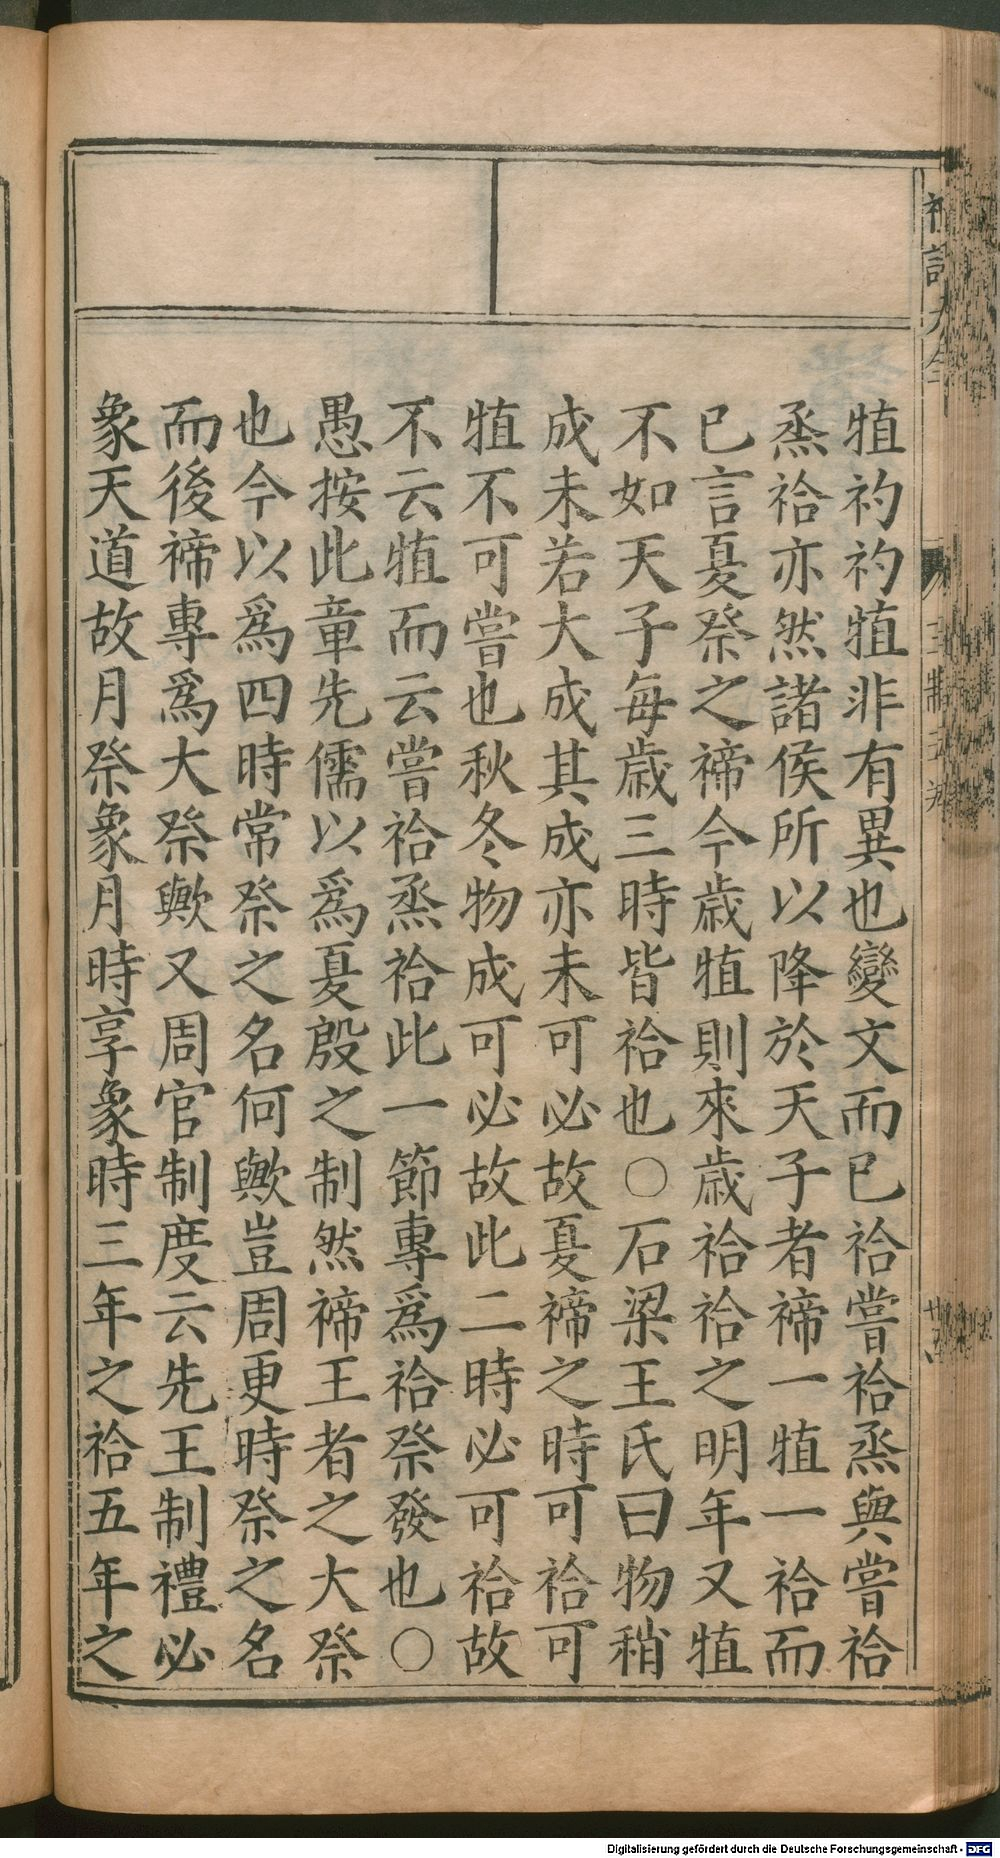 犆礿礿犆非有異也變文而已祫嘗祫烝與嘗祫
烝祫亦然諸侯所以降於天子者禘一犆一祫而
已言夏祭之禘今歲犆則來歲祫祫之明年又犆
不如天子每歲三時皆祫也○石梁王氏曰物稍
成未若大成其成亦未可必故夏禘之時可祫可
犆不可嘗也秋冬物成可必故此二時必可祫故
不云犆而云嘗祫烝祫此一節專爲祫祭發也○
愚按此章先儒以爲夏殷之制然禘王者之大祭
也今以爲四時常祭之名何歟豈周更時祭之名
而後禘專爲大祭歟又周官制度云先王制禮必
象天道故月祭象月時享象時三年之祫五年之
Digitalisierung gefördert durch die Deutsche Forschungsgemeinschaft - DFG